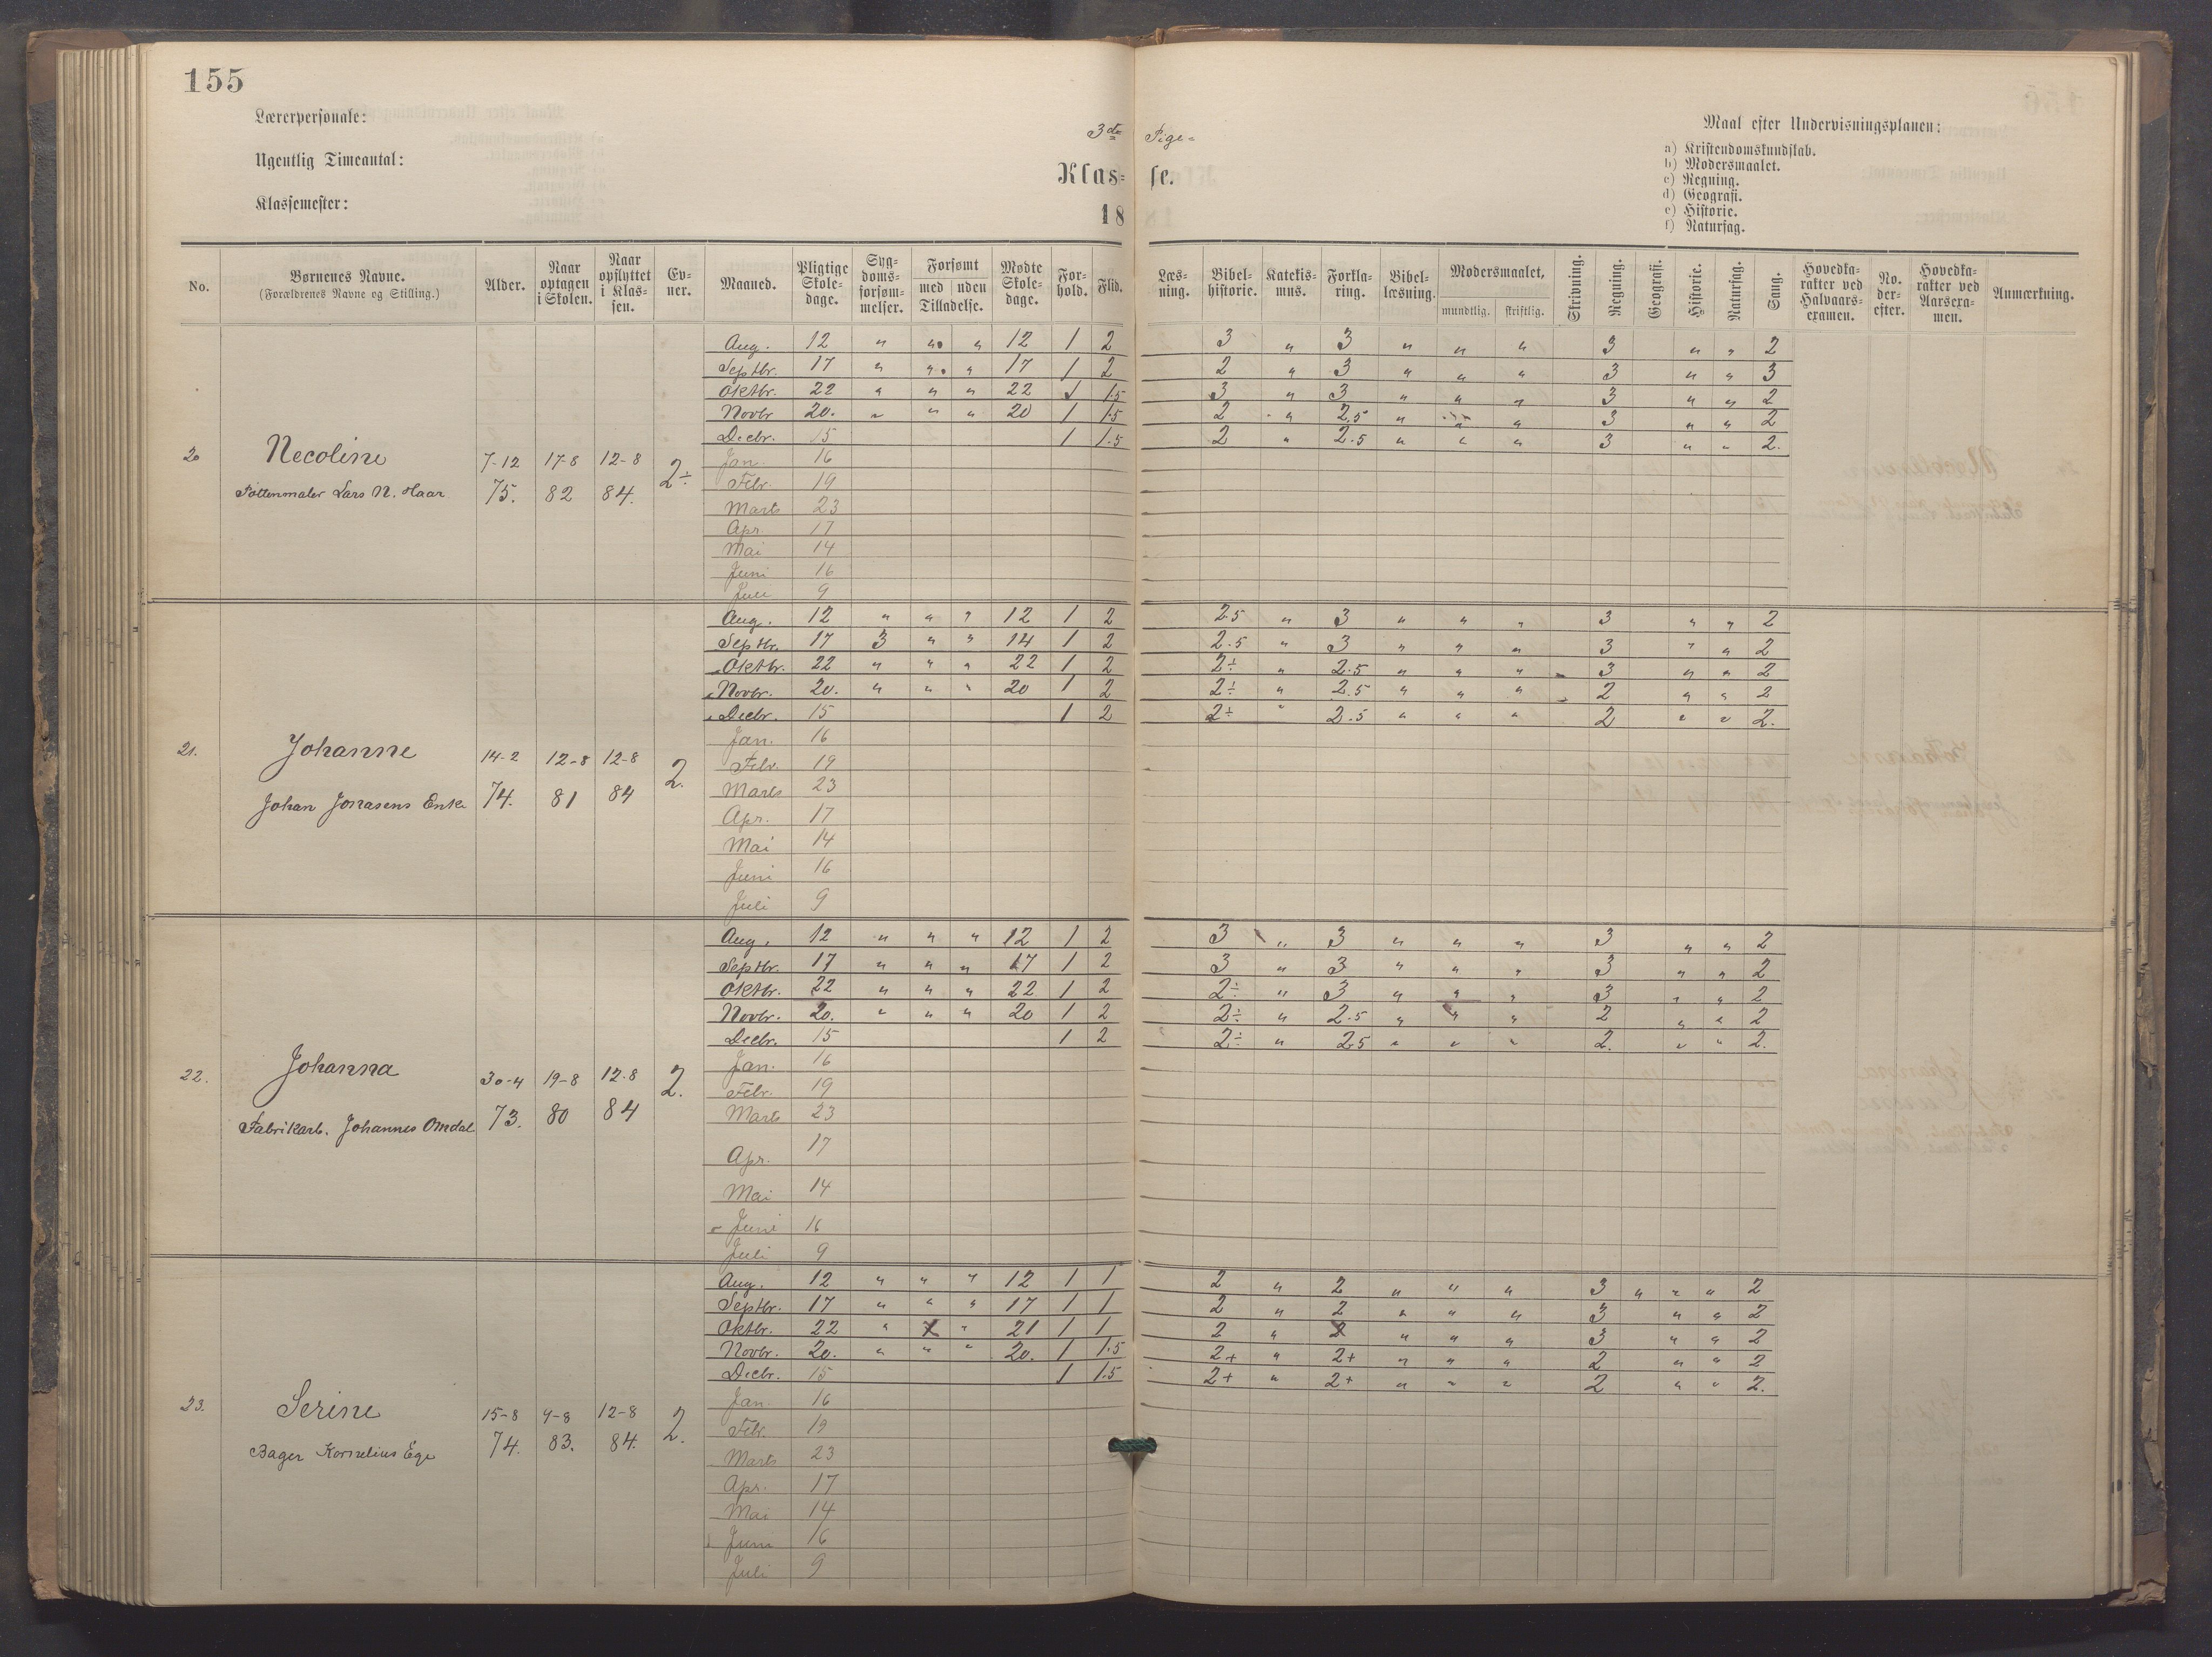 155
Lærerpersonale:
Ugentlig Timeantal:
Klassemester:
3die Pige-
Klas- se.
18
Maal efter Undervisningsplanen:
a) Kristendomskundskab.
b) Modersmaalet.
c) Regning.
d) Geografi.
e) Historie.
f) Naturfag.
No. Børnenes Navne. (Forældrenes Navne og Stilling.) Alder. Naar optagen i Skolen. Naar opflyttet i Klassen. Evner. Maaned. Pligtige Skoledage. Sygdomsforsømmelser. Forsømt med uden Tilladelse. Mødte Skoledage. Forhold. Flid. Læsning. Bibelhistorie. Katekismus. Forklaring. Bibellæsning. Modersmaalet, mundtlig. skriftlig. Skrivning. Regning. Geografi. Historie. Naturfag. Sang. Hovedkarakter ved Halvaarsexamen. No. derefter. Hovedkarakter ved Aarsexamen. Anmærkning.
Aug. 12 " " " 12 1 2 3 " 3 " " " 3 " " 2
Septbr. 17 " " " 17 1 2 2 " 3 " " " 3 " " 3
Oktbr. 22 " " " 22 1 1.5 3 " 3 " " " 3 " " 2
Novbr 20. " " " 20 1 1.5 2 " 2,5 " " " 3 " " 2
Decbr. 15 1 1.5 2 " 2.5 " " " 3 " " 2.
20 Necoline 7-12 17-8 12-8 2÷
Pottenmaler Lars N. Haar 75. 82 84.
Jan. 16
Febr. 19
Marts 23
Apr. 17
Mai 14
Juni 16
Juli 9
Aug. 12 " " " 12 1 2 2.5 " 3 " " " 3 " " 2
Septbr. 17 3 " " 14 1 2 2.5 " 3 " " " 3 " " 2
Oktbr. 22 " " " 22 1 2 2÷ " 2.5 " " " 3 " " 2
Novbr. 20. " " " 20 1 2 2÷ " 2.5 " " " 2 " " 2
Decbr. 15 1 2 2÷ " 2.5 " " " 2 " " 2.
21. Johanne 14-2 12-8 12-8 2.
Johan Jonasens Enke 74. 81 84
Jan. 16
Febr. 19
Marts 23
Apr. 17
Mai 14
Juni 16
Juli 9
Aug. 12 " " " 12 1 2 3 " 3 " " " 3 " " 2
Septbr. 17 " " " 17 1 2 3 " 3 " " " 3 " " 2
Oktbr. 22 " " " 22 1 2 2÷ " 3 " " " 3 " " 2
Novbr. 20. " " " 20 1 2 2÷ " 2.5 " " " 2 " " 2
Decbr. 15 1 2 2÷ " 2.5 " " " 2. " " 2.
22. Johanna 30-4 19-8 12-8 2.
Fabrikarb. Johannes Omdal 73. 80 84
Jan. 16
Febr. 19
Marts 23
Apr. 17
Mai 14
Juni 16
Juli 9
Aug. 12 " " " 12 1 1 2 " 2 " " " 3 " " " 2
Septbr. 17 " " " 17 1 1 2 " 2 " " " 3 " " 2
Oktbr. 22 " 1 " 21 1 1 2 " 2 " " " 3 " " 2
Novbr. 20. " " " 20. 1 1.5 2+ " 2+ " " " 2 " " 2
Decbr. 15 1 1.5 2+ " 2+ " " " 2 " " 2.
23. Serine 15-8 9-8 12-8 2.
Bager Kornelius Ege 74. 83. 84.
Jan. 16
Febr. 19
Marts 23
Apr. 17
Mai 14
Juni 16
Juli 9